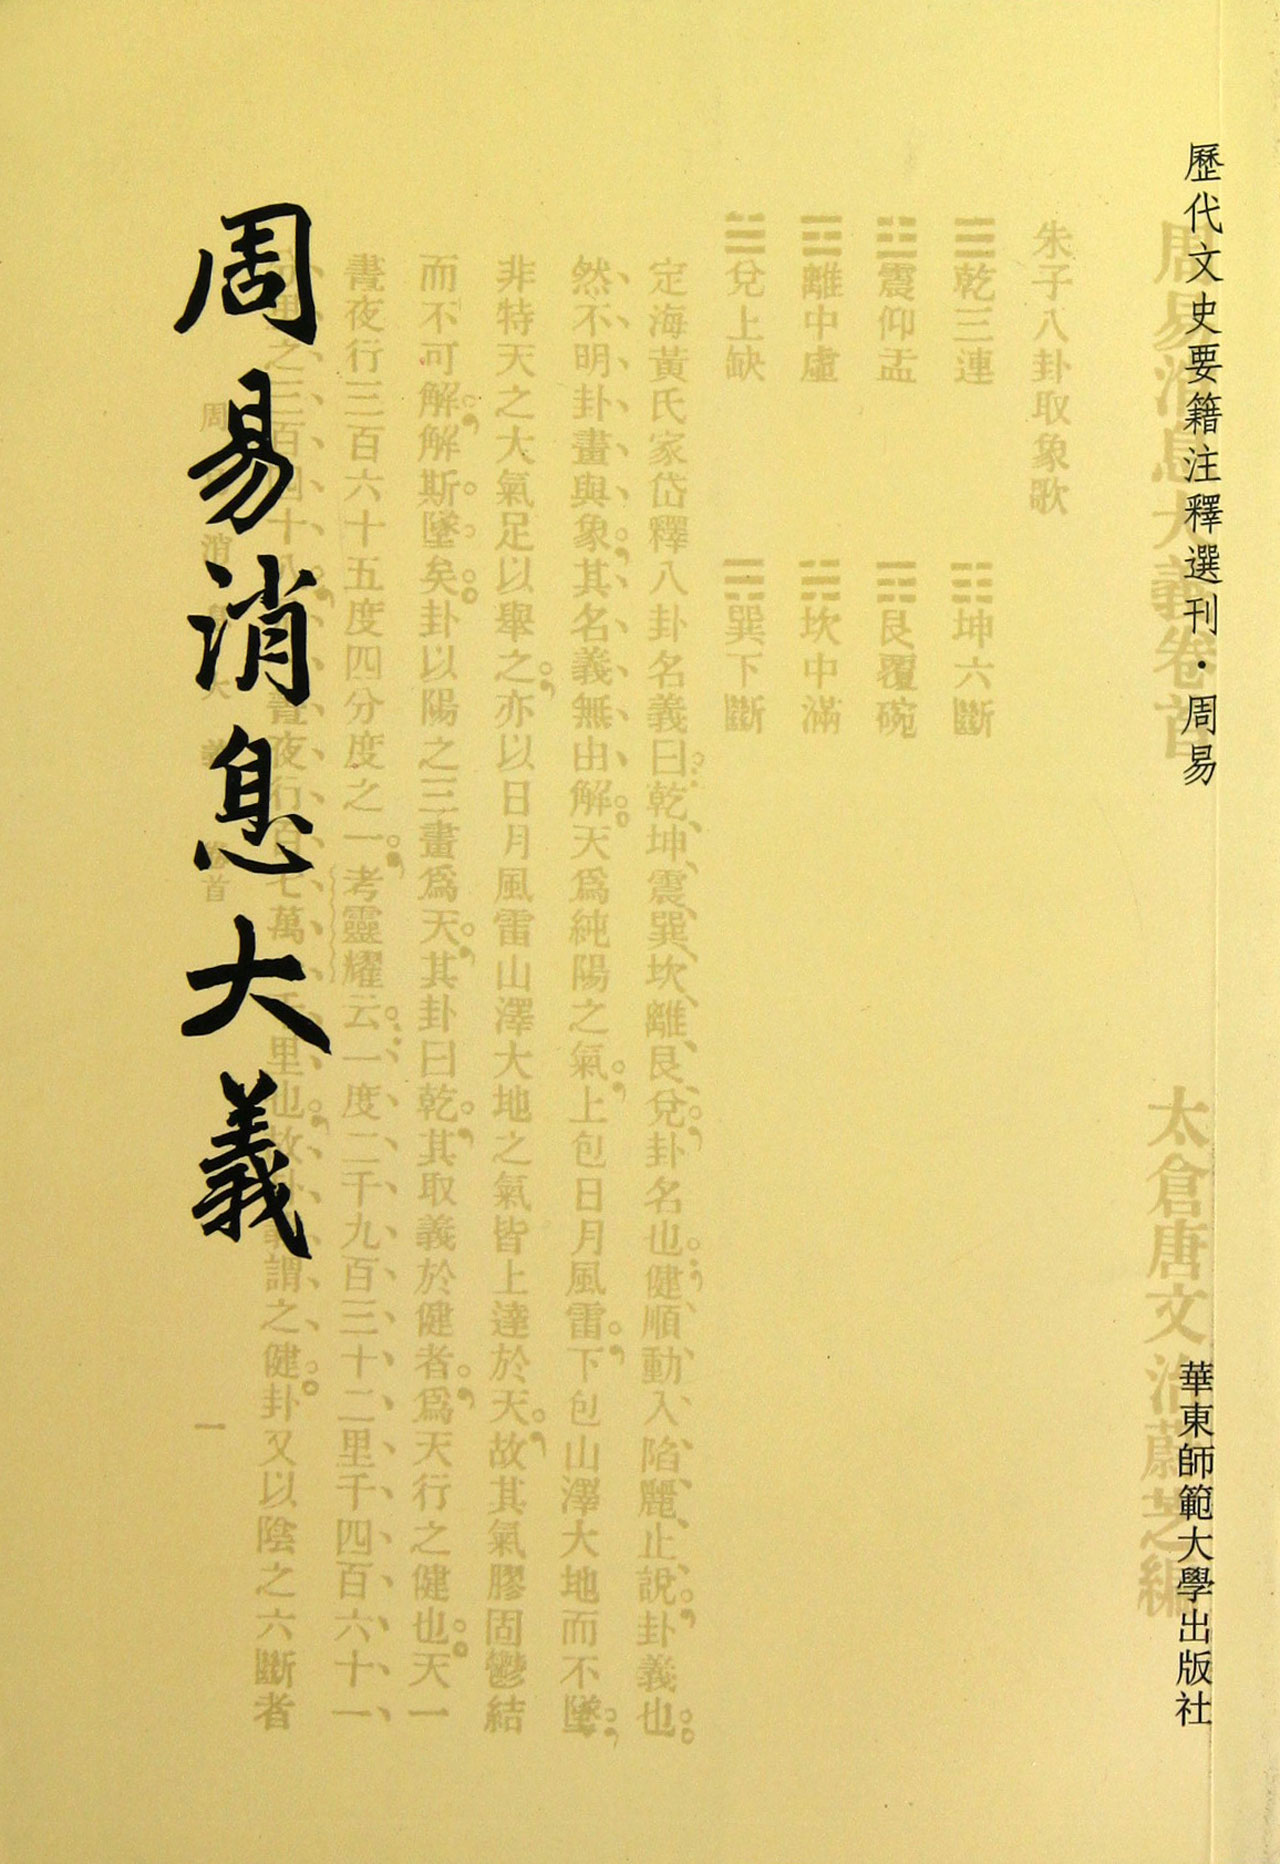 歷代文史要籍注釋選刊·周易
華東師範大學出版社
周易消息大義卷首
太倉唐文治蔚芝編
朱子八卦取象歌
☰乾三連 ☷坤六斷
☳震仰盂 ☶艮覆碗
☲離中虛 ☵坎中滿
☱兌上缺 ☴巽下斷
定海黃氏家岱釋八卦名義曰乾、坤、震、巽、坎、離、艮、兌、卦名也健、順、動、入、陷、麗、止、說、卦義也
然不明卦畫與象其名義無由解天爲純陽之氣上包日月風雷下包山澤大地而不墜
非特天之大氣足以舉之亦以日月風雷山澤大地之氣皆上達於天故其氣膠固鬱結
而不可解解斯墜矣卦以陽之三畫爲天其卦曰乾其取義於健者爲天行之健也天一
晝夜行三百六十五度四分度之一考靈耀云一度二千九百三十二里千四百六十一
之三百四十八 晝夜行百七萬 千里也故卦義謂之健卦又以陰之六斷者
周易消息大義
周 消 大義 卷首
一